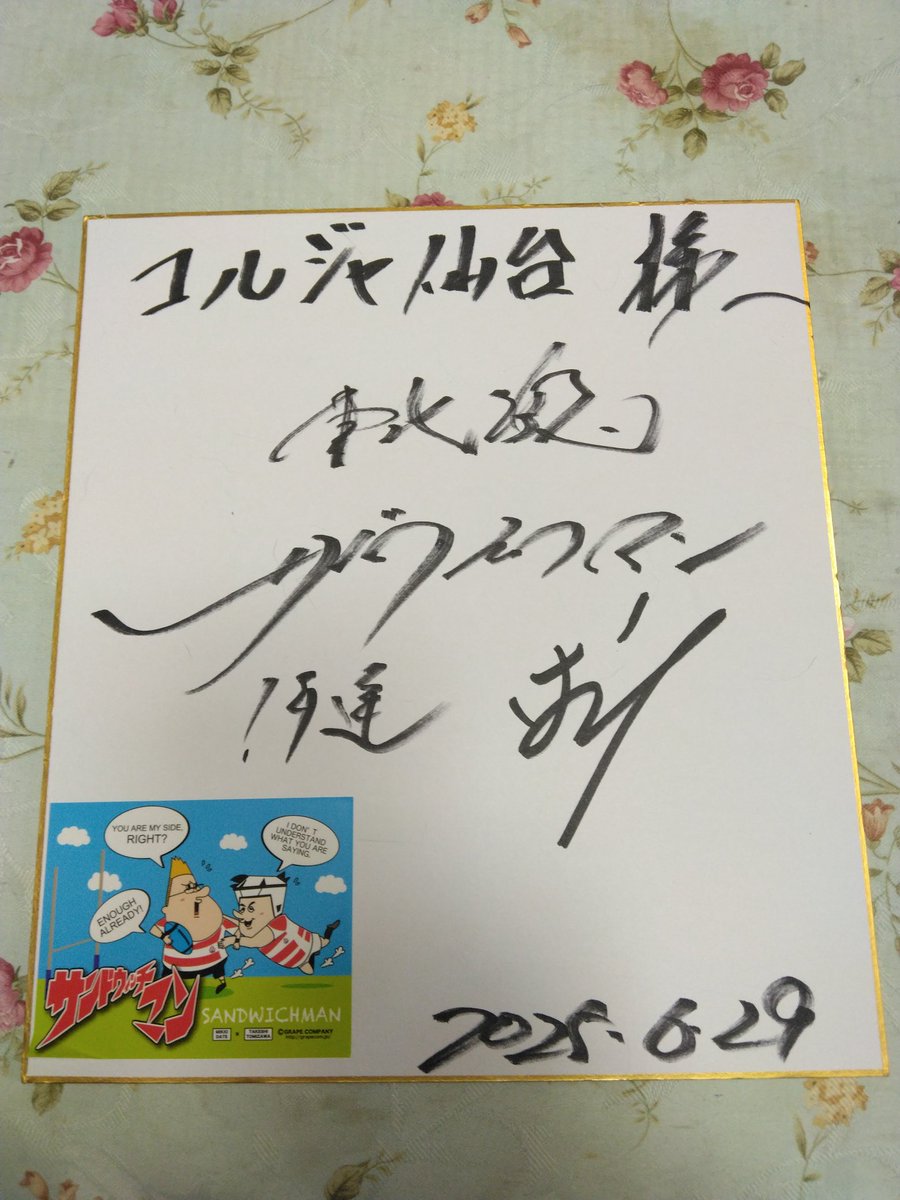 コルジャ仙台 様へ
東北魂
サンドウィッチマン
伊達
YOU ARE MY SIDE,
RIGHT?
I DON'T
UNDERSTAND
WHAT YOU ARE
SAYING.
ENOUGH
ALREADY!
サンドウィッチマン
SANDWICHMAN
MIKIO
DATE
×
TAKESHI
TOMIZAWA
©GRAPE COMPANY
http://grapecom.jp/
2025.6.29